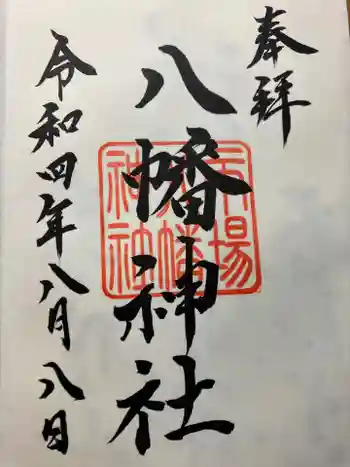 奉拝
八幡神社
市場八幡神社
令和四年八月八日